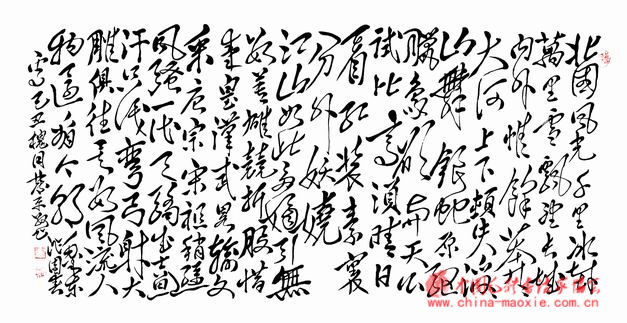 北國风光千里冰封
萬里雪飘望长城
内外惟餘莽莽
大河上下頓失滔滔
山舞銀蛇原驰
臘象欲与天公
试比高須晴日
看红装素裹
分外妖嬈
江山如此多嬌引無
数英雄競折腰惜
秦皇漢武略输文
采唐宗宋祖稍遜
风骚一代天骄成吉思
汗只识弯弓射大
雕俱往矣数风流人
物还看今朝
雪己丑
www.china-maoxie.com.cn